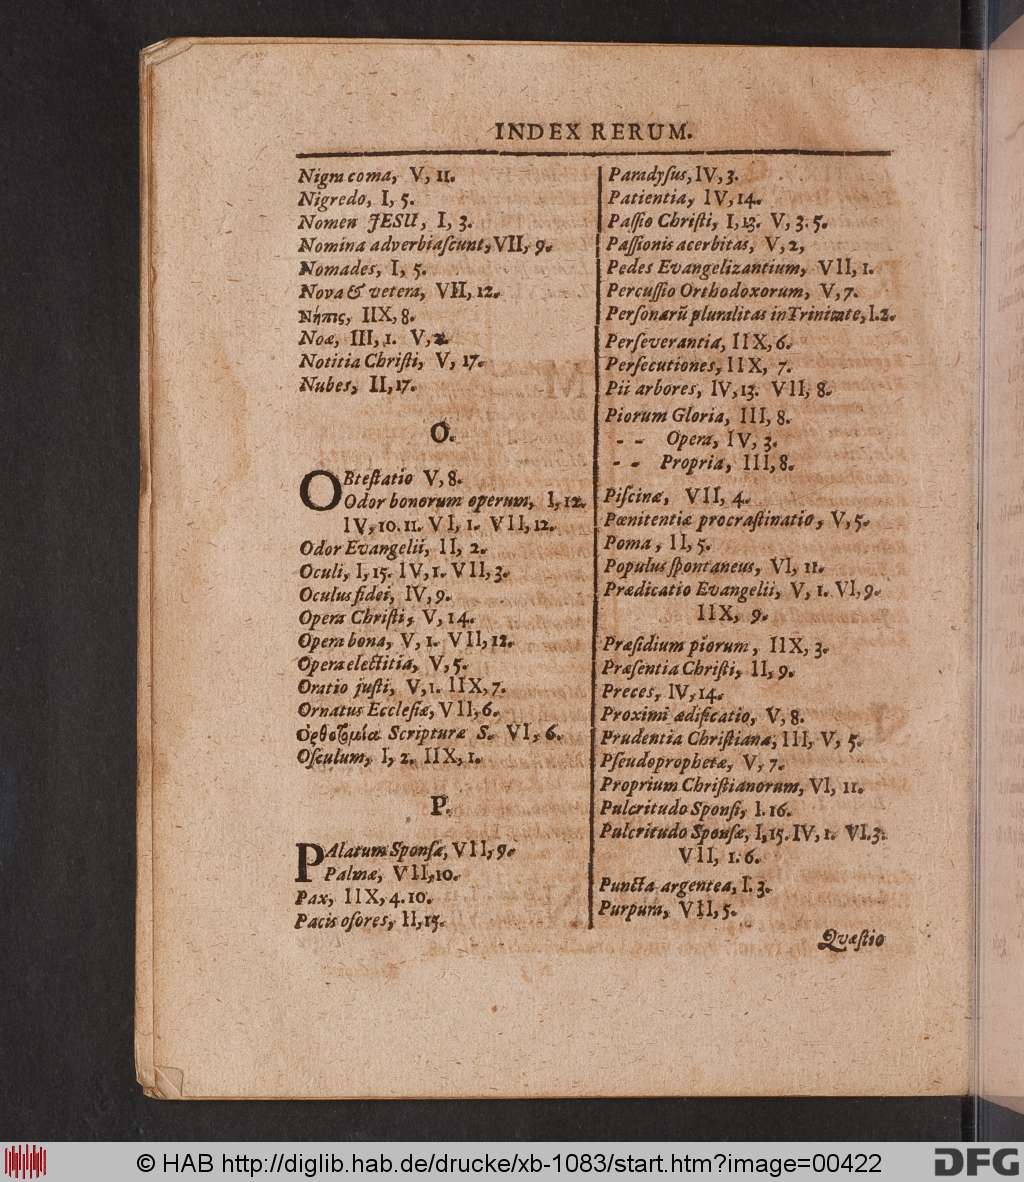 INDEX RERUM.
Nigra coma, V, 11.
Nigredo, I, 5.
Nomen JESU, I, 3.
Nomina adverbiaſcunt, VII, 9.
Nomades, I, 5.
Nova & vetera, VII, 12.
IIX, 8.
Noæ, III, 1. V, 2.
Notitia Chriſti, V, 17.
Nubes, II, 17.
O.
OBteſtatio V, 8.
Odor bonorum operum, I, 12.
IV, 10. 11. VI, 1. VII, 12.
Odor Evangelii, II, 2.
Oculi, I, 15. IV, 1. VII, 3.
Oculus fidei, IV, 9.
Opera Chriſti, V, 14.
Opera bona, V, 1. VII, 12.
Opera electitia, V, 5.
Oratio juſti, V, 1. IIX, 7.
Ornatus Eccleſiæ, VII, 6.
ὀρθοτομία Scripturæ S. VI, 6.
Oſculum, I, 2. IIX, 1.
P.
PAlatum Sponſæ, VII, 9.
Palmæ, VII, 10.
Pax, IIX, 4. 10.
Pacis oſores, II, 15.
Paradyſus, IV, 3.
Patientia, IV, 14.
Paſſio Chriſti, I, 13. V, 3. 5.
Paſſionis acerbitas, V, 2,
Pedes Evangelizantium, VII, 1.
Percuſſio Orthodoxorum, V, 7.
Perſonarũ pluralitas in Trinitate, I. 2.
Perſeverantia, IIX, 6.
Perſecutiones, IIX, 7.
Pii arbores, IV, 13. VII, 8.
Piorum Gloria, III, 8.
- - Opera, IV, 3.
- - Propria, III, 8.
Piſcinæ, VII, 4.
Pœnitentiæ procraſtinatio, V, 5.
Poma, II, 5.
Populus ſpontaneus, VI, 11.
Prædicatio Evangelii, V, 1. VI, 9.
IIX, 9.
Præſidium piorum, IIX, 3.
Præſentia Chriſti, II, 9.
Preces, IV, 14.
Proximi ædificatio, V, 8.
Prudentia Chriſtiana, III, V, 5.
Pſeudoprophetæ, V, 7.
Proprium Chriſtianorum, VI, 11.
Pulcritudo Sponſi, I. 16.
Pulcritudo Sponſæ, I, 15. IV, 1. VI. 3.
VII, 1. 6.
Puncta argentea, I. 3.
Purpura, VII, 5.
Quæſtio
© HAB http://diglib.hab.de/drucke/xb-1083/start.htm?image=00422
DFG